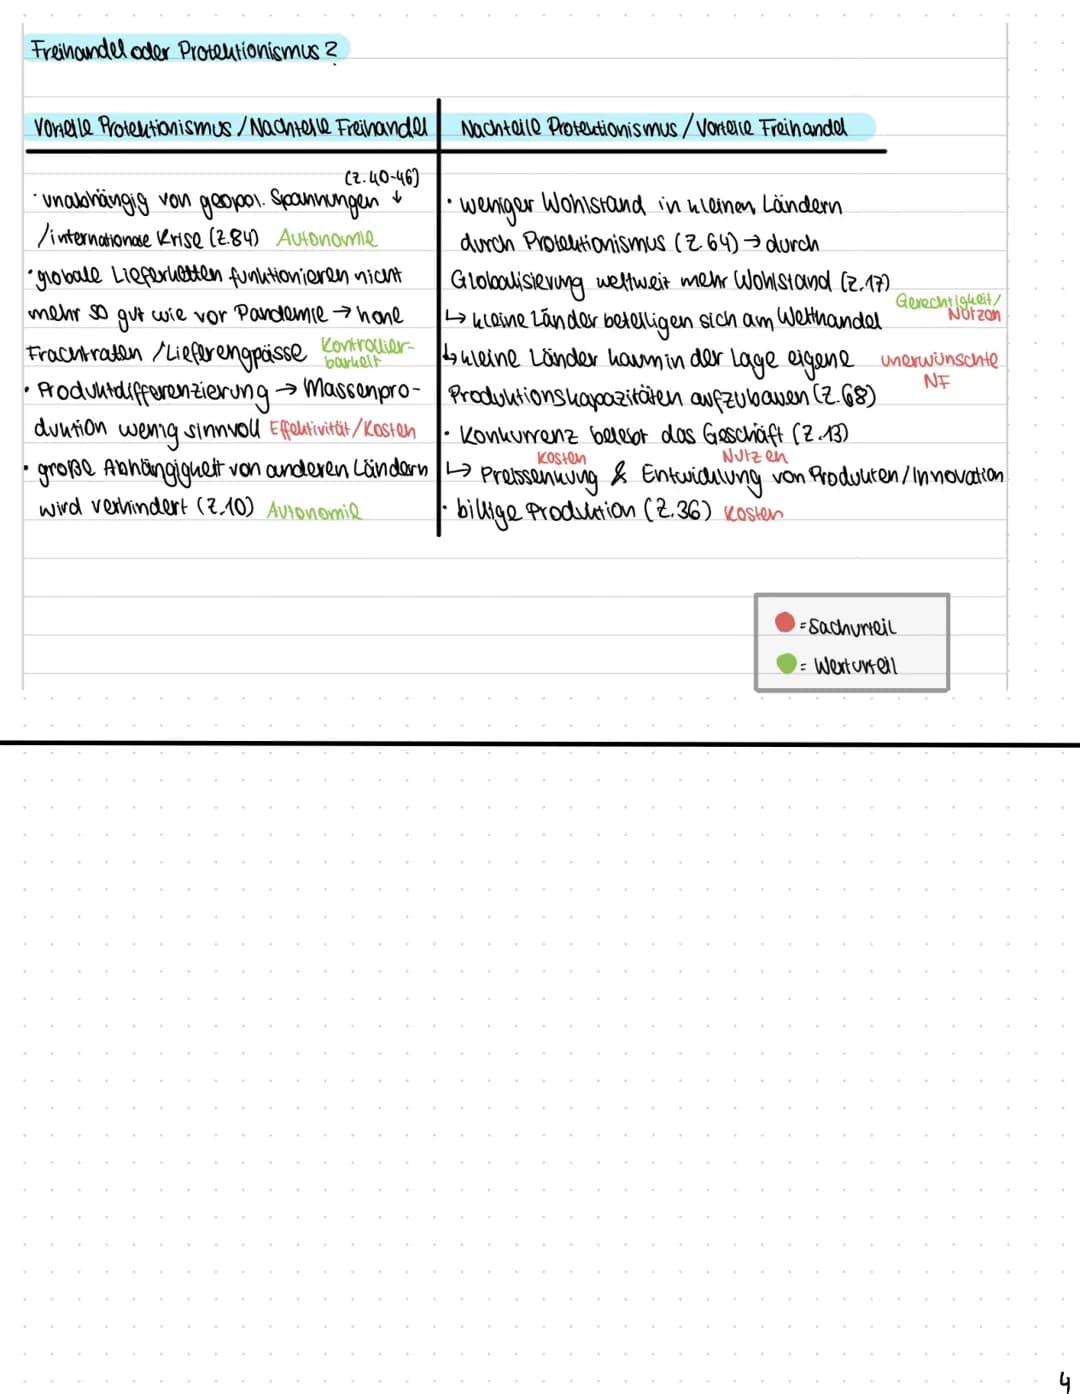 Freihandel oder Protektionismus?
Vorteile Protektionismus/Nachteile Freihandel
(Z.40-46)
· unabhängig von geopol. Spannungen ↓
/internationale Krise (Z.84) Autonomie
· globale Lieferketten funktionieren nicht
mehr so gut wie vor Pandemie → hohe
Frachtraten /Lieferengpässe Kontrollier-
barkeit
· Produktdifferenzierung → Massenpro-
duktion wenig sinnvoll Effektivität/Kosten
· große Abhängigkeit von anderen Ländern
wird verhindert (Z.10) Autonomie
Nachteile Protektionismus/Vorteile Freihandel
· weniger Wohlstand in kleinen Ländern
durch Protektionismus (Z 64) → durch
Globalisierung weltweit mehr Wohlstand (Z.17)
Gerechtigkeit/
Nutzen
↳ kleine Länder beteiligen sich am Welthandel
↳ kleine Länder kaum in der Lage eigene unerwünschte
NF
Produktionskapazitäten aufzubauen (Z.68)
· Konkurrenz belebt das Geschäft (Z.13)
Kosten Nutzen
↳ Preissenkung & Entwicklung von Produkten/Innovation
· billige Produktion (Z.36) Kosten
= Sachurteil
= Werturteil
4